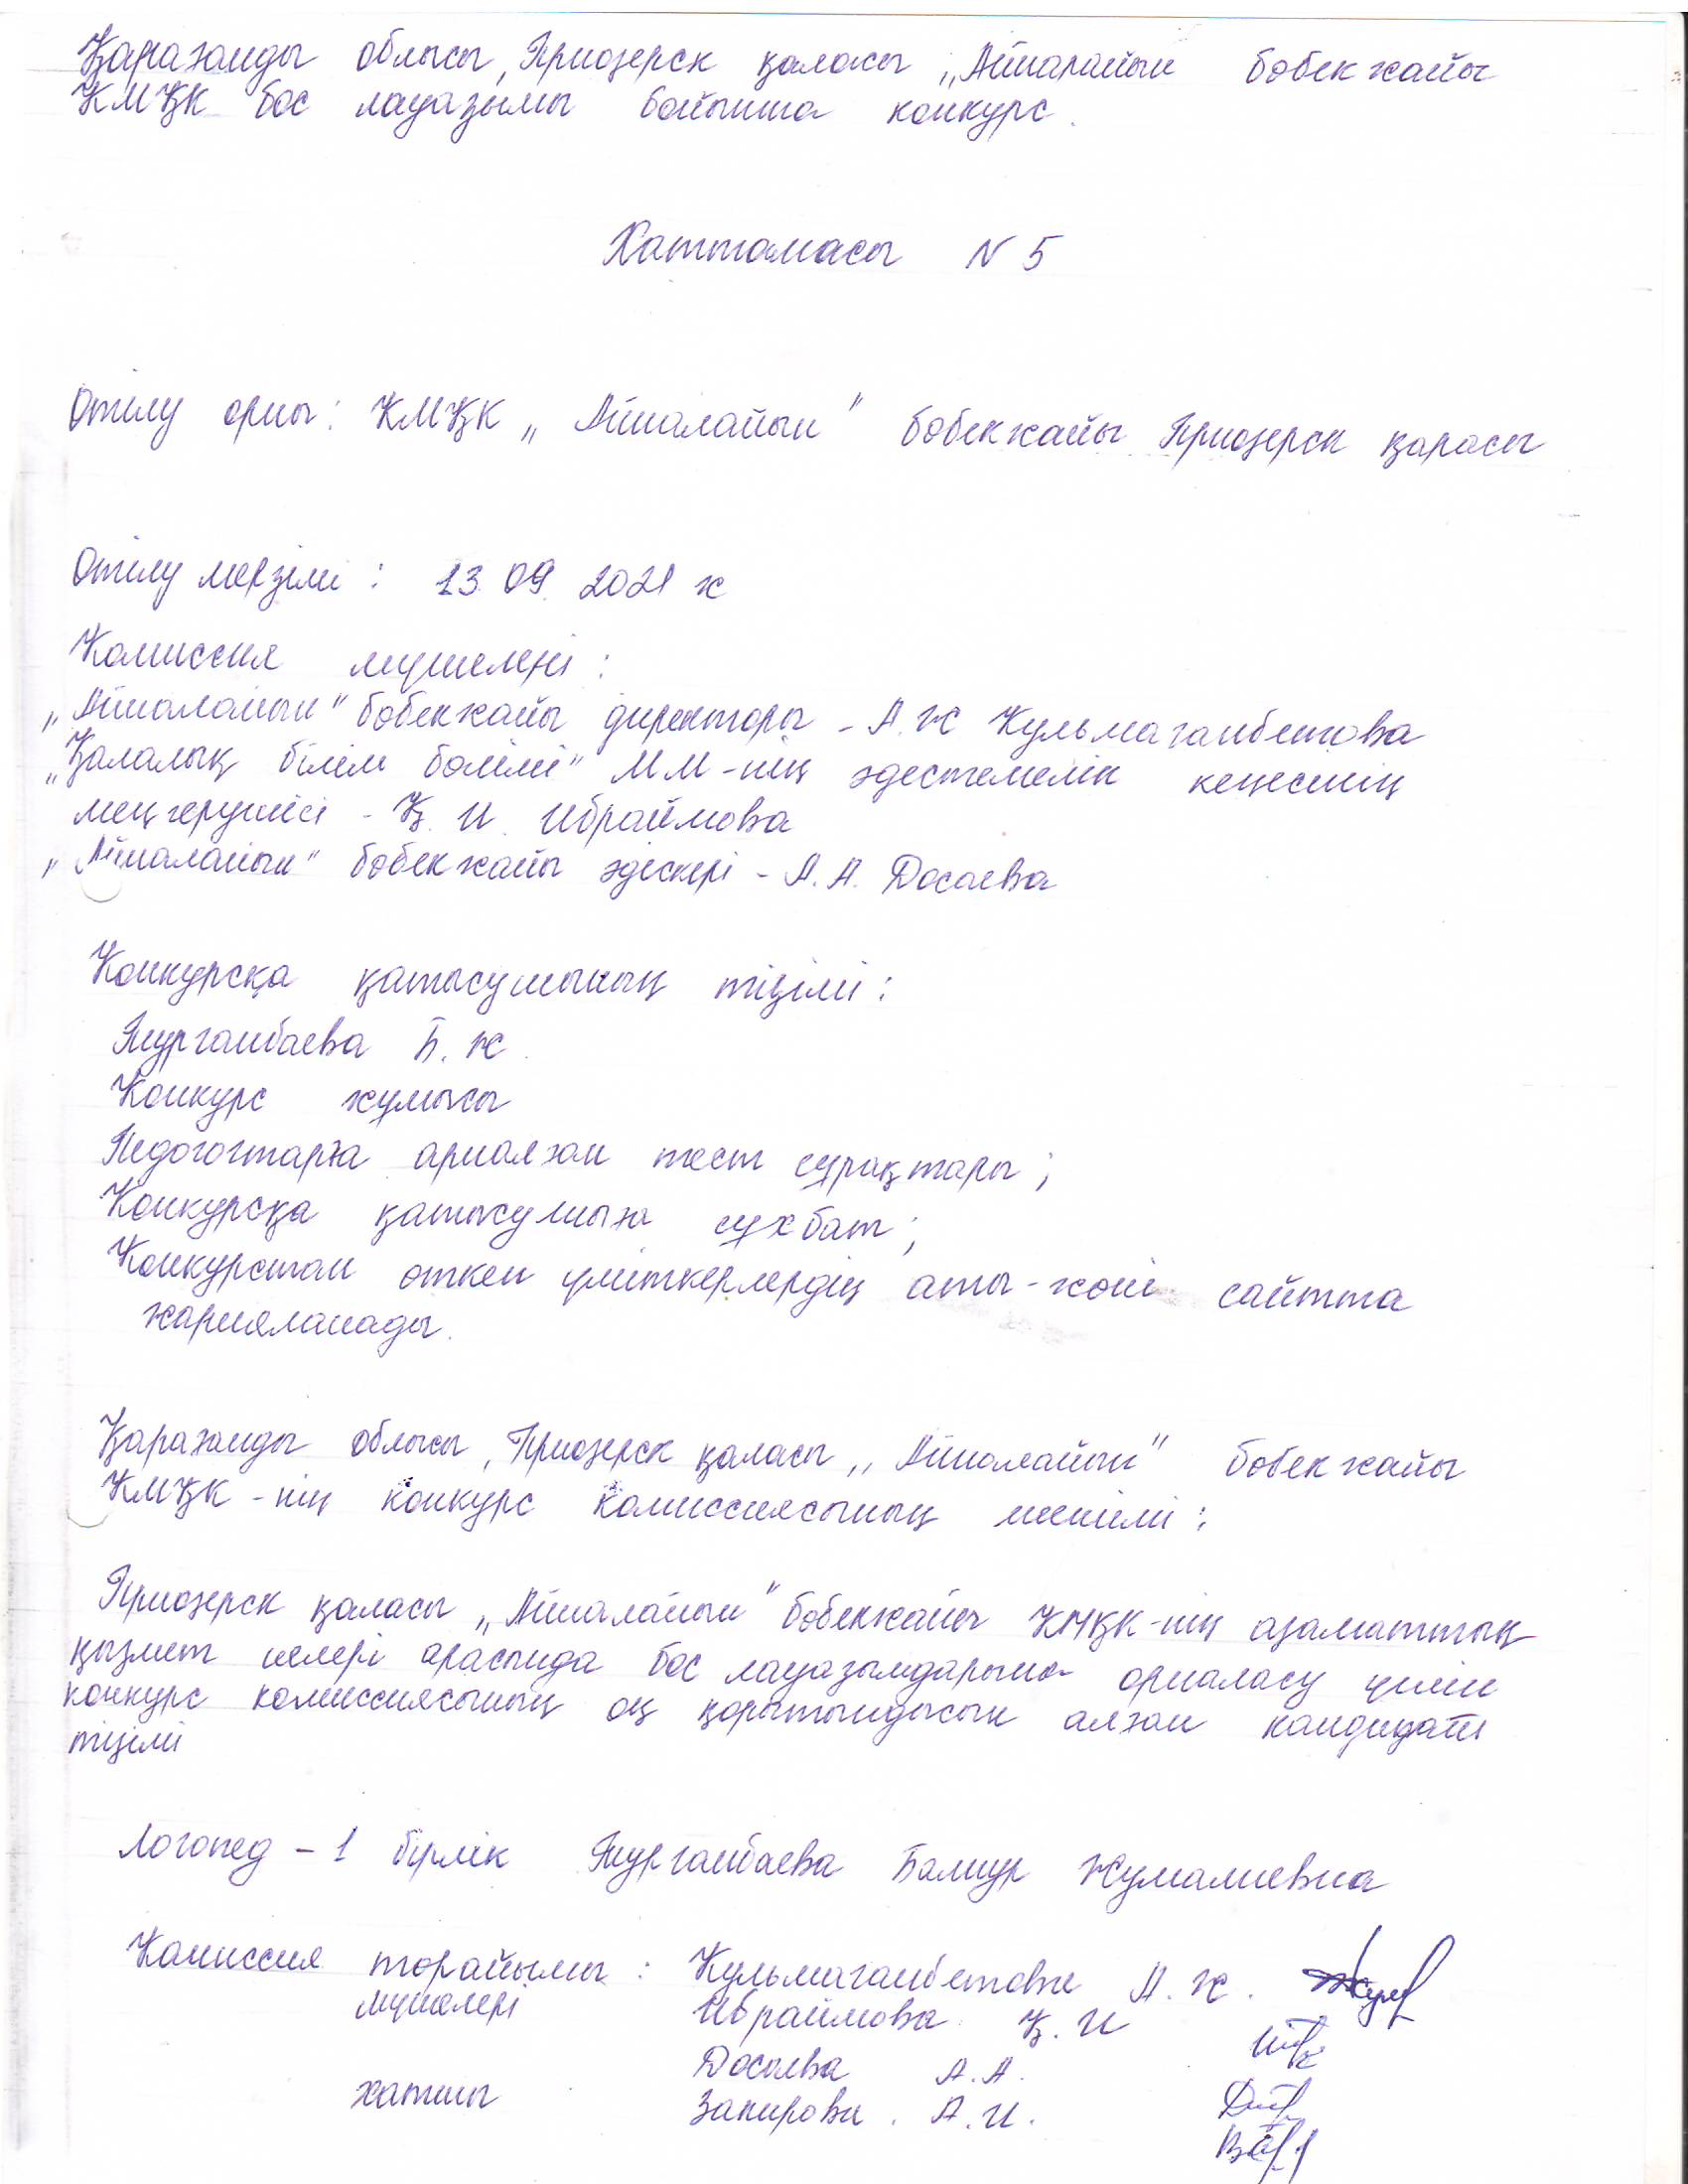 Қарағанды облысы, Приозерск қаласы „Айналайын бөбекжайы
КМҚК бос лауазымы бойынша конкурс.
Хаттамасы N 5
Өтілу орны: КМҚК „Айналайын" бөбекжайы Приозерск қаласы
Өтілу мерзімі: 13 09 2021 ж
Комиссия мүшелері:
„Айналайын" бөбекжайы директоры - А.Ж Кульмаганбетова
„Қалалық білім бөлімі" ММ-нің әдестемелік кеңесінің
меңгерушісі - Қ. И. Ибраимова
„Айналайын" бөбекжайы әдіскері - А.А. Досаева
Конкурсқа қатысушының тізімі:
Турганбаева Б.Ж.
Конкурс жұмысы
Педогогтарға арналған тест сұрақтары;
Конкурсқа қатысушыға сұхбат;
Конкурстан өткен үміткерлердің аты-жөні сайтта
жарияланады.
Қарағанды облысы, Приозерск қаласы „Айналайын" бөбекжайы
КМҚК-нің конкурс комиссиясының шешімі:
Приозерск қаласы „Айналайын" бөбекжайы КМҚК-нің азаматтық
қызмет иелері арасында бос лауазымдарына орналасу үшін
конкурс комиссиясының оң қорытындысын алған кандидаты
тізімі
Логопед - 1 бірлік Турганбаева Балнур Жумалиевна
Комиссия төрайымы: Кульмаганбетова А.Ж.
мүшелері Ибраимова Қ.И
Досаева А.А.
хатшы Закирова А.И.